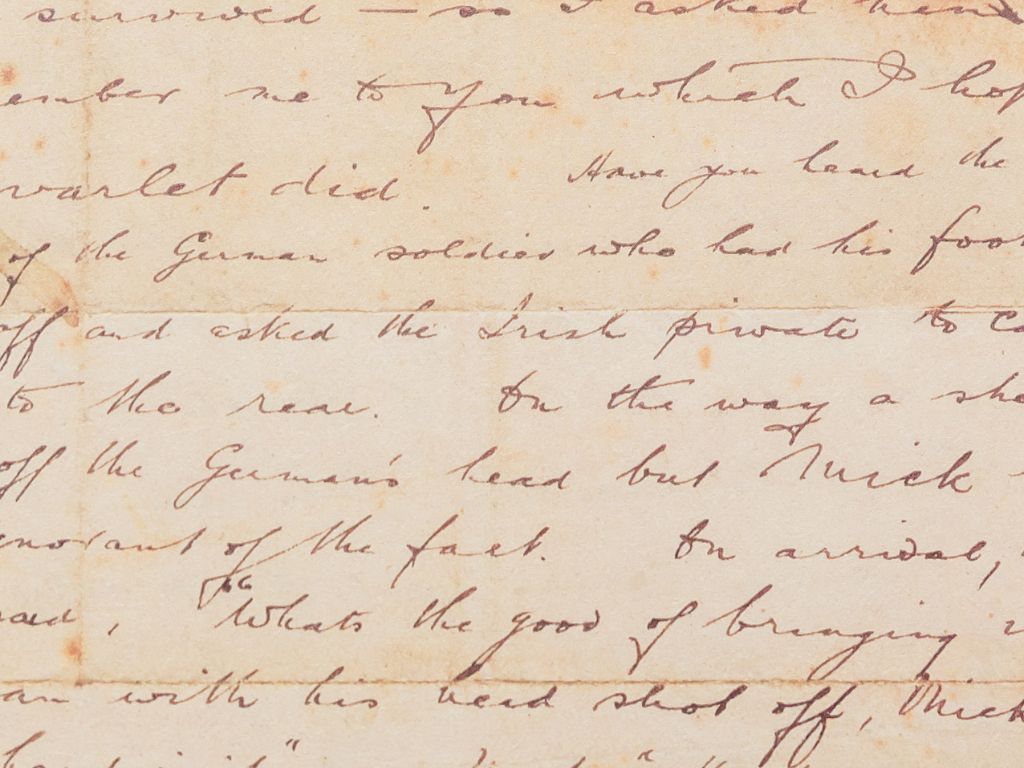 survived — so I asked him
ember me to you which I hop
varlet did. Have you heard the
of the German soldier who had his foot
off and asked the Irish private to ca
to the rear. On the way a she
off the German's head but Mick
ignorant of the fact. On arrival,
said, "Whats the good of bringing
an with his head shot off, Mick